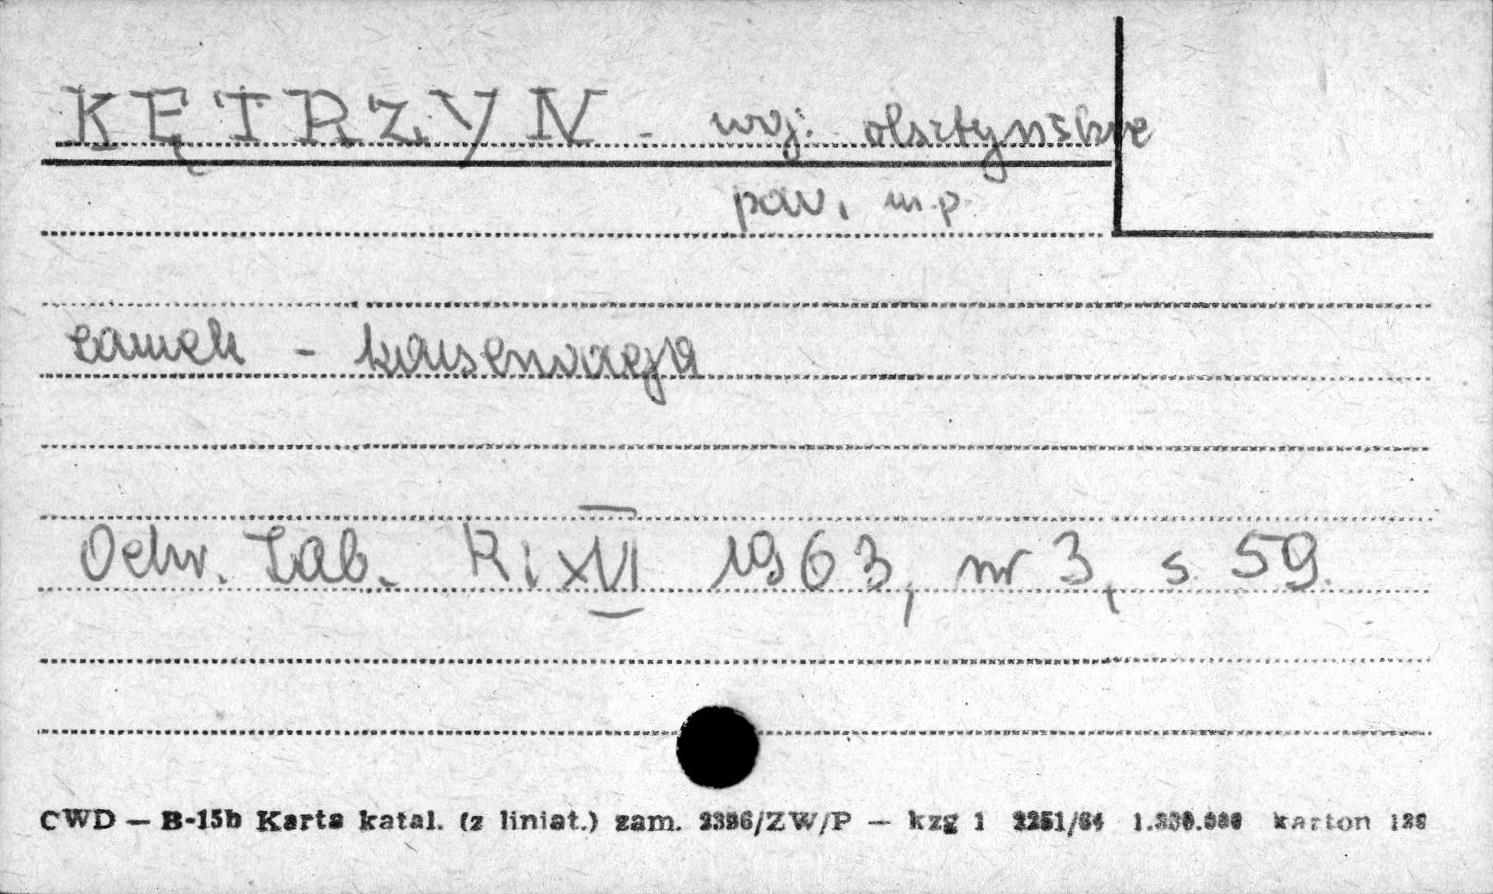 KĘTRZYN - woj. olsztyńskie
pow. m.p.
zamek - konserwacja
Ochr. Zab. R. XVI 1963, nr 3, s. 59.
CWD — B-15b Karta katal. (z liniat.) zam. 2386/ZW/P — kzg 1 2251/64 karton